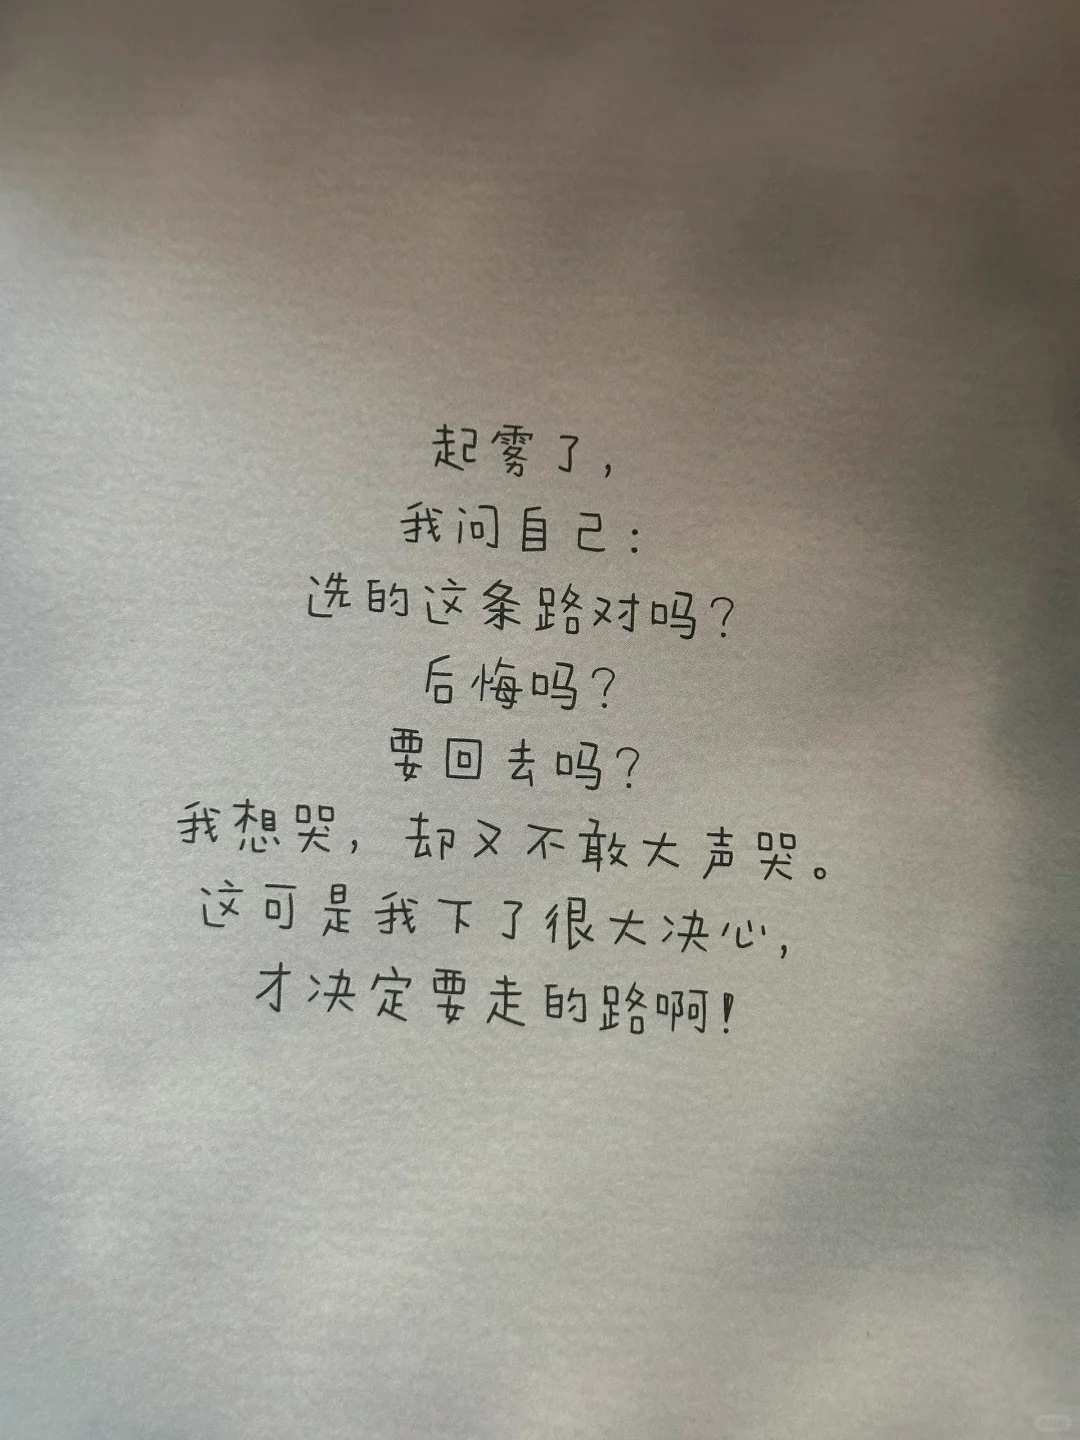 起雾了，
我问自己：
选的这条路对吗？
后悔吗？
要回去吗？
我想哭，却又不敢大声哭。
这可是我下了很大决心，
才决定要走的路啊！